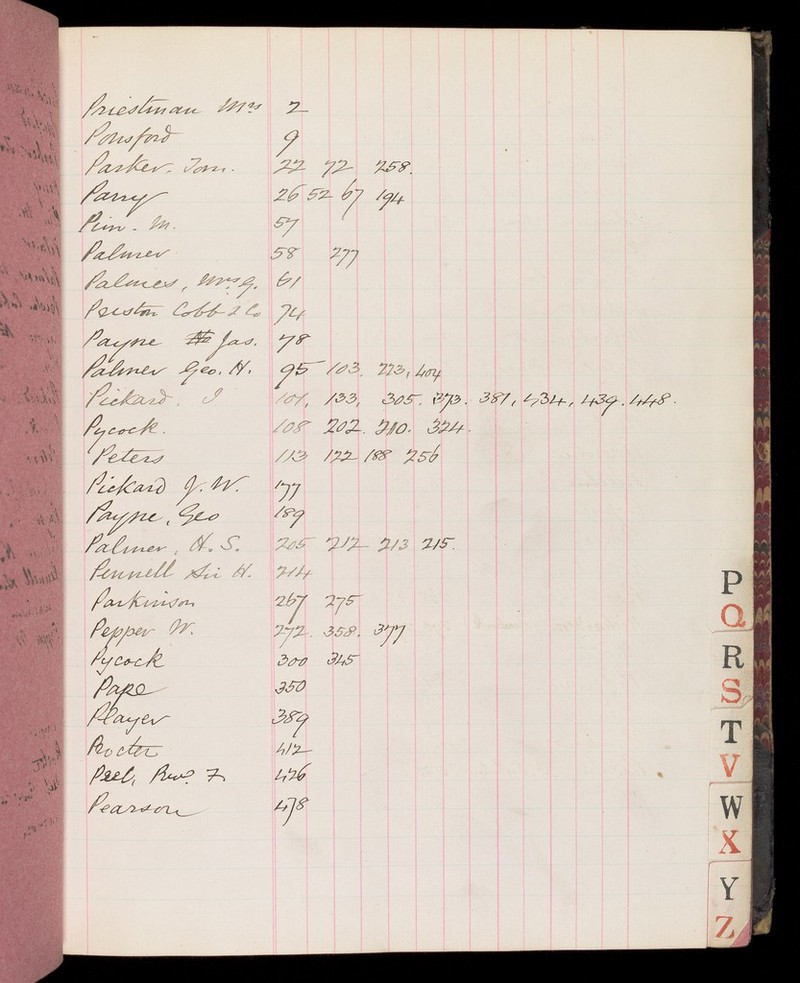 Priestman Mrs 2
Ponsford 9
Parker. Tom. 22 72 258.
Parry 26 52 67 194
Pim. M. 57
Palmer 58 277
Palmes, Mrs G. 61
Preston Cobb & Co 74
Payne Jas. 78
Palmer Geo. H. 95 103. 273, 404
Pickard. J 101, 133, 305. 373. 381, 434, 439. 448.
Pycock. 108 202. 210. 324.
Peters 113 122 188 256
Pickard J. W. 177
Payne, Geo 189
Palmer, H. S. 205 212 213 215.
Pennell Sir H. 214
Parkinson 267 275
Pepper W. 272. 358. 377
Pycock 300 345
Pape 350
Player 389
Procter 412
Peel, Revd. F 426
Pearson 478
P
Q
R
S
T
V
W
X
Y
Z